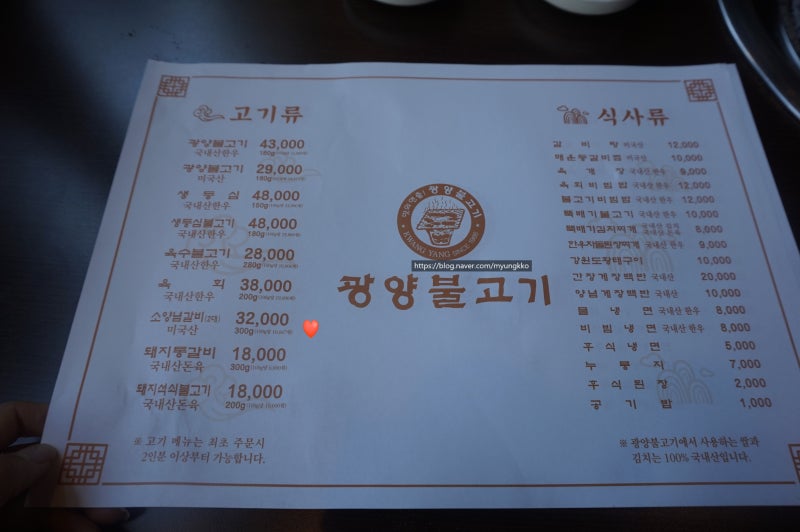 고기류
광양불고기 43,000
국내산한우 180g
광양불고기 29,000
미국산 180g
생등심 48,000
국내산한우 150g
생등심불고기 48,000
국내산한우 180g
육수불고기 28,000
국내산한우 280g
육회 38,000
국내산한우 200g
소양념갈비(2대) 32,000
미국산 300g
돼지등갈비 18,000
국내산돈육 300g
돼지석쇠불고기 18,000
국내산돈육 200g
※ 고기 메뉴는 최초 주문시
2인분 이상부터 가능합니다.
광양불고기
KWANG YANG SINCE
https://blog.naver.com/myungkko
광양불고기
식사류
갈비탕 미국산 12,000
매운등갈비찜 미국산 10,000
육개장 국내산 한우 9,000
육회비빔밥 국내산 한우 12,000
불고기비빔밥 국내산 한우 12,000
뚝배기불고기 국내산 한우 10,000
뚝배기김치찌개 국내산 김치 국내산 돈육 8,000
한우차돌된장찌개 국내산 한우 9,000
강원도황태구이 10,000
간장게장백반 국내산 20,000
양념게장백반 국내산 10,000
물냉면 국내산 한우 8,000
비빔냉면 국내산 한우 8,000
후식냉면 5,000
누룽지 7,000
후식된장 2,000
공기밥 1,000
※ 광양불고기에서 사용하는 쌀과
김치는 100% 국내산입니다.